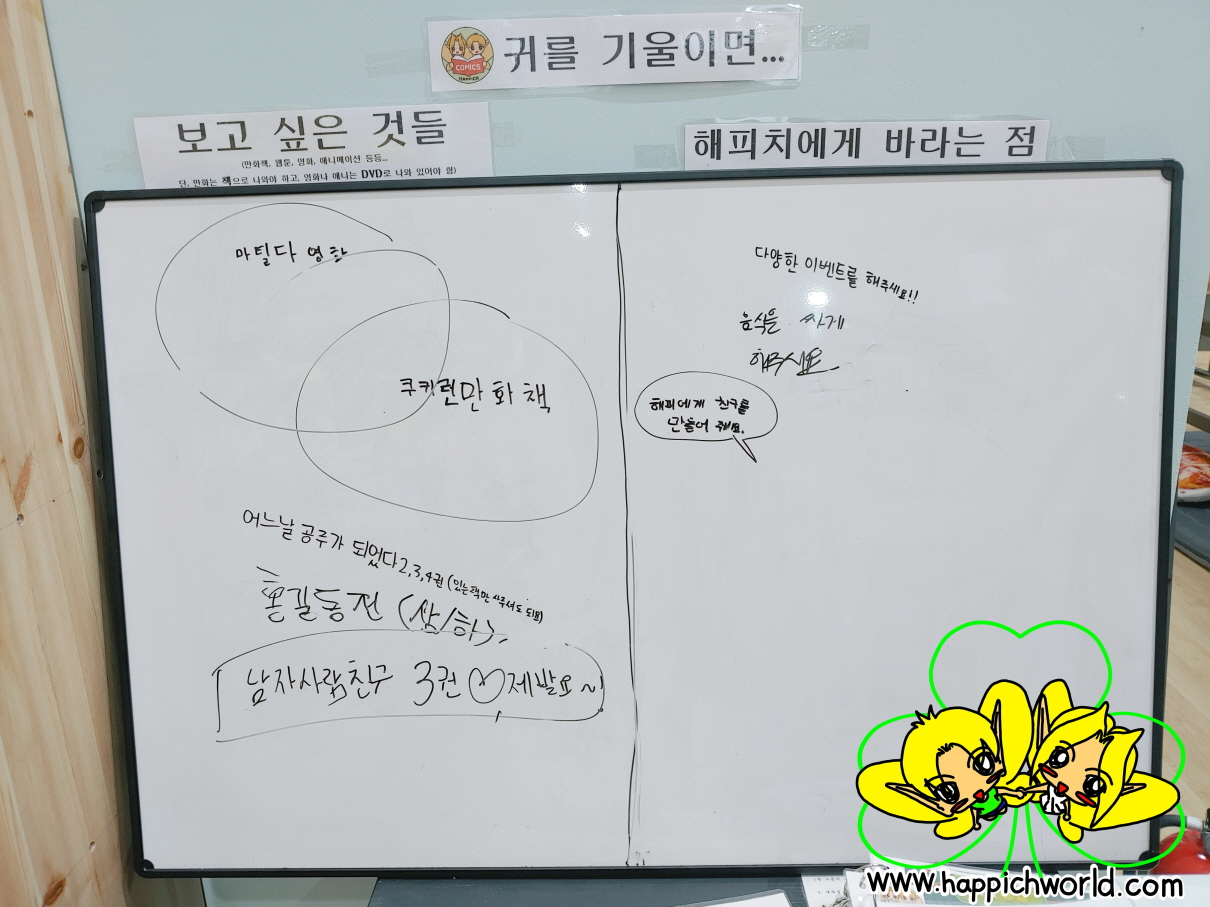 COMICS
HAPPICH
귀를 기울이면...
보고 싶은 것들
(만화책, 웹툰, 영화, 애니메이션 등등...
단, 만화는 책으로 나와야 하고, 영화나 애니는 DVD로 나와 있어야 함)
해피치에게 바라는 점
마틸다 영화
쿠키런만화책
어느날 공주가 되었다 2,3,4권 (있는책만 사주셔도 되요)
홍길동전 (상/하)
남자사람친구 3권 ♡제발요~
다양한 이벤트를 해주세요!!
음식을 싸게
해주십쇼.
해피에게 친구를
만들어 줘요.
www.happichworld.com